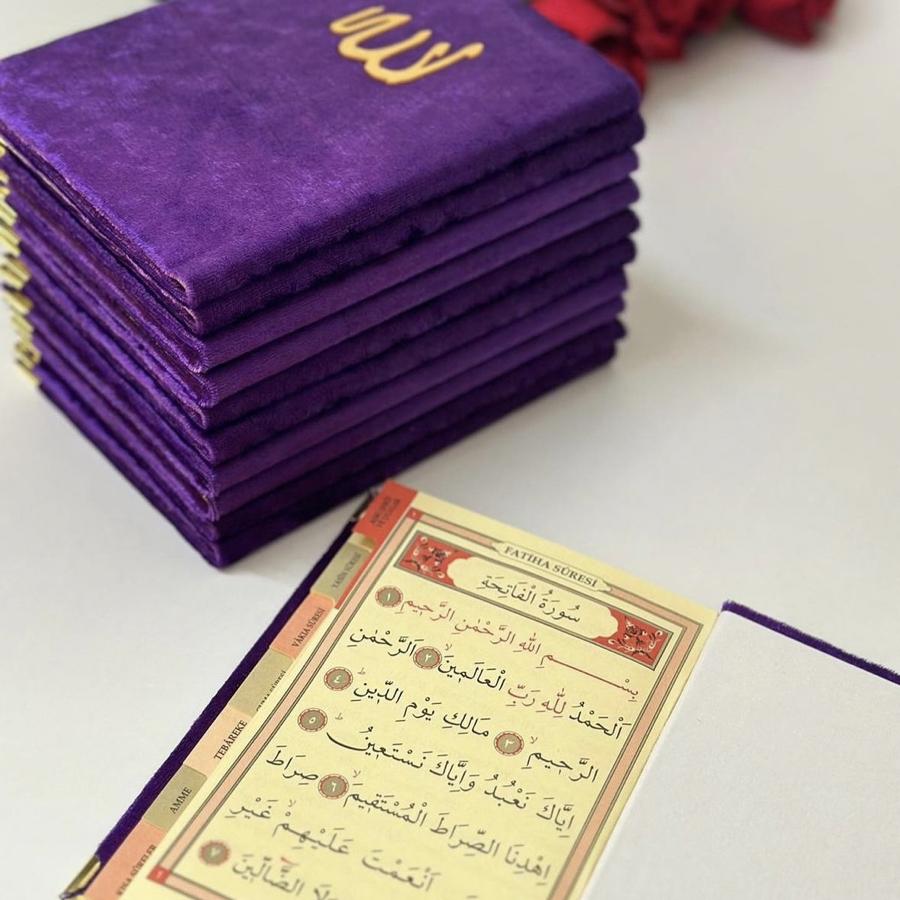 الله
FATİHA SÛRESİ
سُورَةُ الْفَاتِحَةِ
بِسْمِ اللهِ الرَّحْمٰنِ الرَّحِيمِ ١
اَلْحَمْدُ لِلّٰهِ رَبِّ الْعَالَمِينَ ٢ اَلرَّحْمٰنِ
الرَّحِيمِ ٣ مَالِكِ يَوْمِ الدِّينِ ٤
اِيَّاكَ نَعْبُدُ وَاِيَّاكَ نَسْتَعِينُ ٥
اِهْدِنَا الصِّرَاطَ الْمُسْتَقِيمَ ٦ صِرَاطَ
اَنْعَمْتَ عَلَيْهِمْ غَيْرِ
وَلَا الضَّٓالِّينَ ٧
YASİN SÛRESİ
VÂKIA SÛRESİ
TEBÂREKE
AMME
KISA SÛRELER